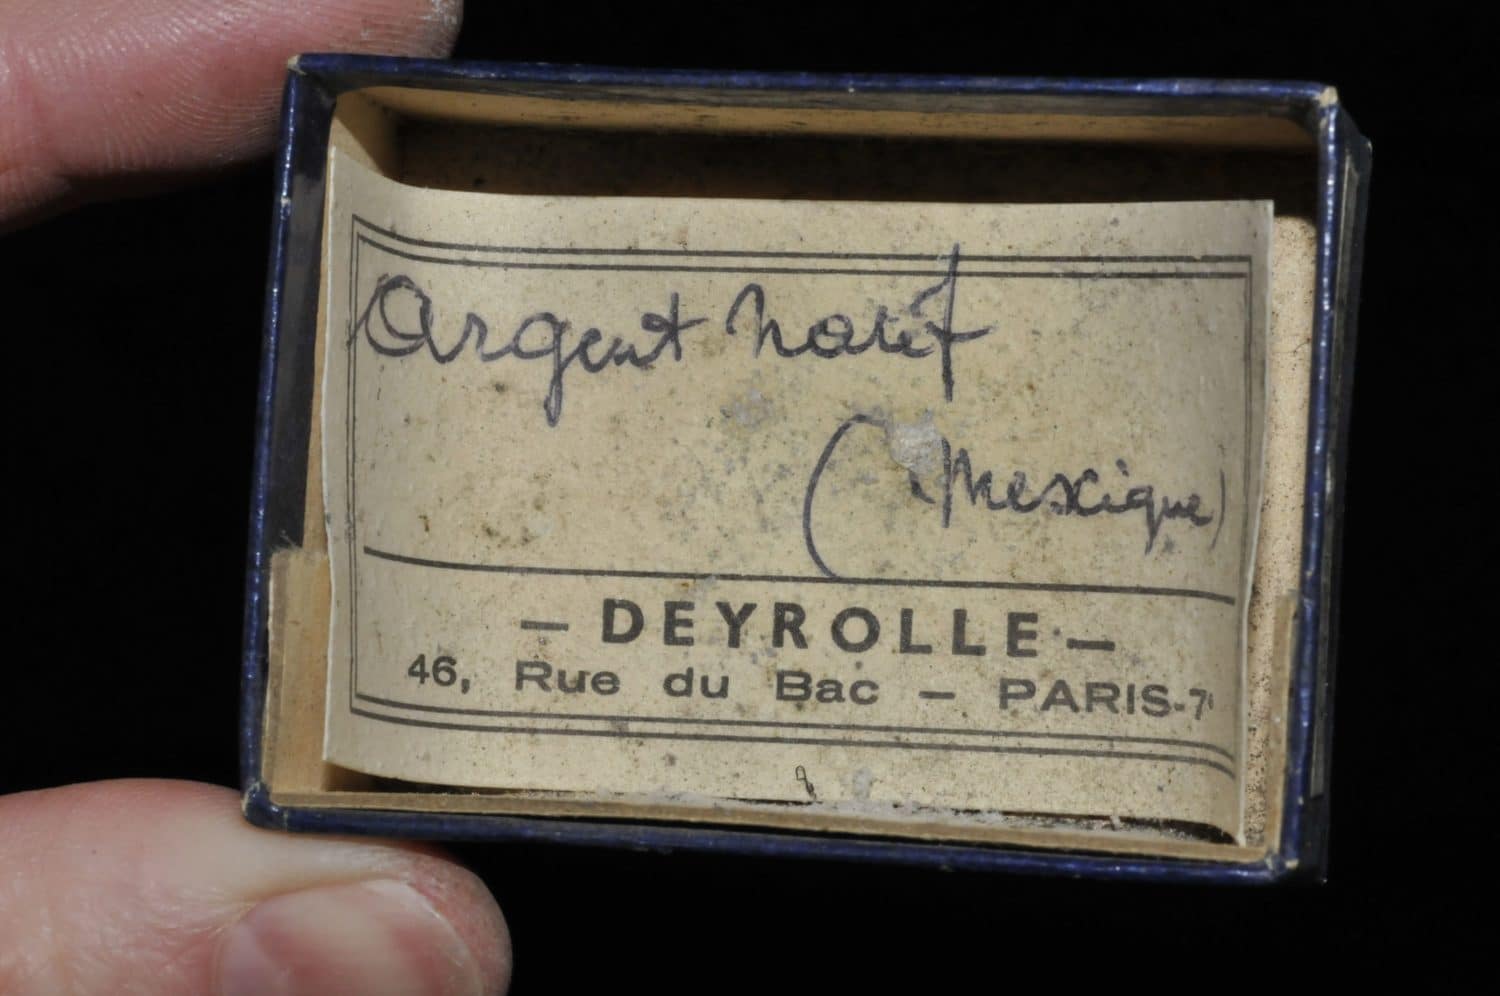 Argent natif
(Mexique)
— DEYROLLE —
46, Rue du Bac — PARIS-7ᵉ